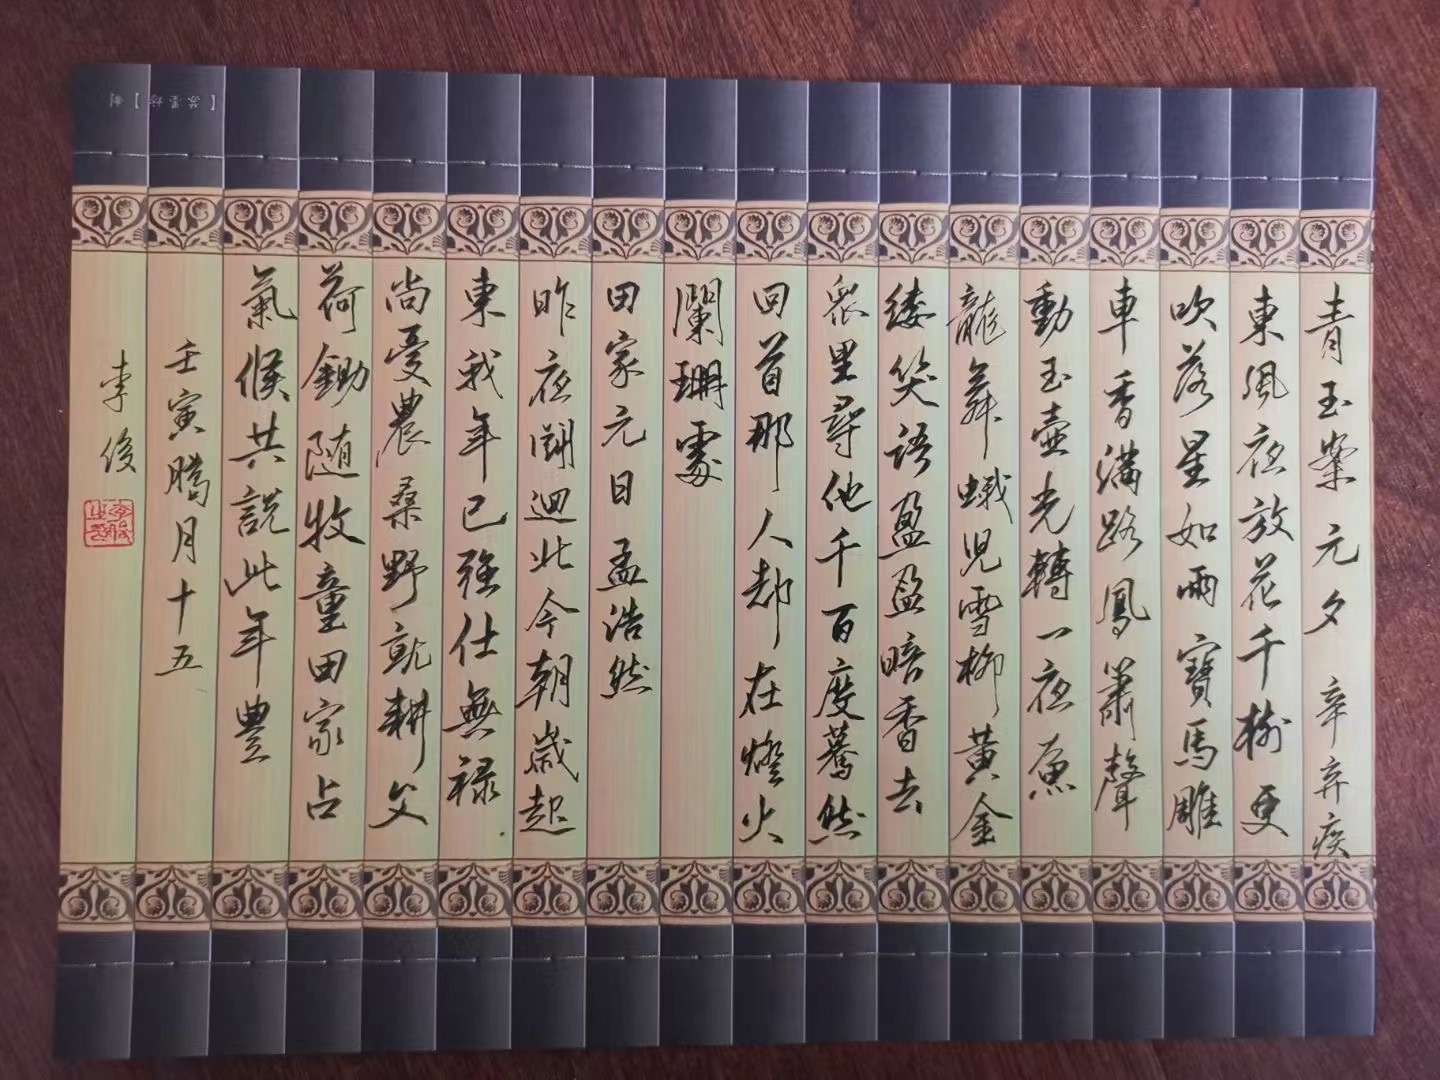 青玉案 元夕 辛弃疾
東風夜放花千樹更
吹落星如雨寶馬雕
車香滿路鳳簫聲
動玉壺光轉一夜魚
龍舞蛾兒雪柳黃金
縷笑語盈盈暗香去
衆里尋他千百度驀然
回首那人却在燈火
闌珊處
田家元日 孟浩然
昨夜斗迴北今朝歲起
東我年已強仕無禄
尚憂農桑野就耕父
荷鋤隨牧童田家占
氣候共説此年豐
壬寅臘月十五
李俊
【茶墨坊】制